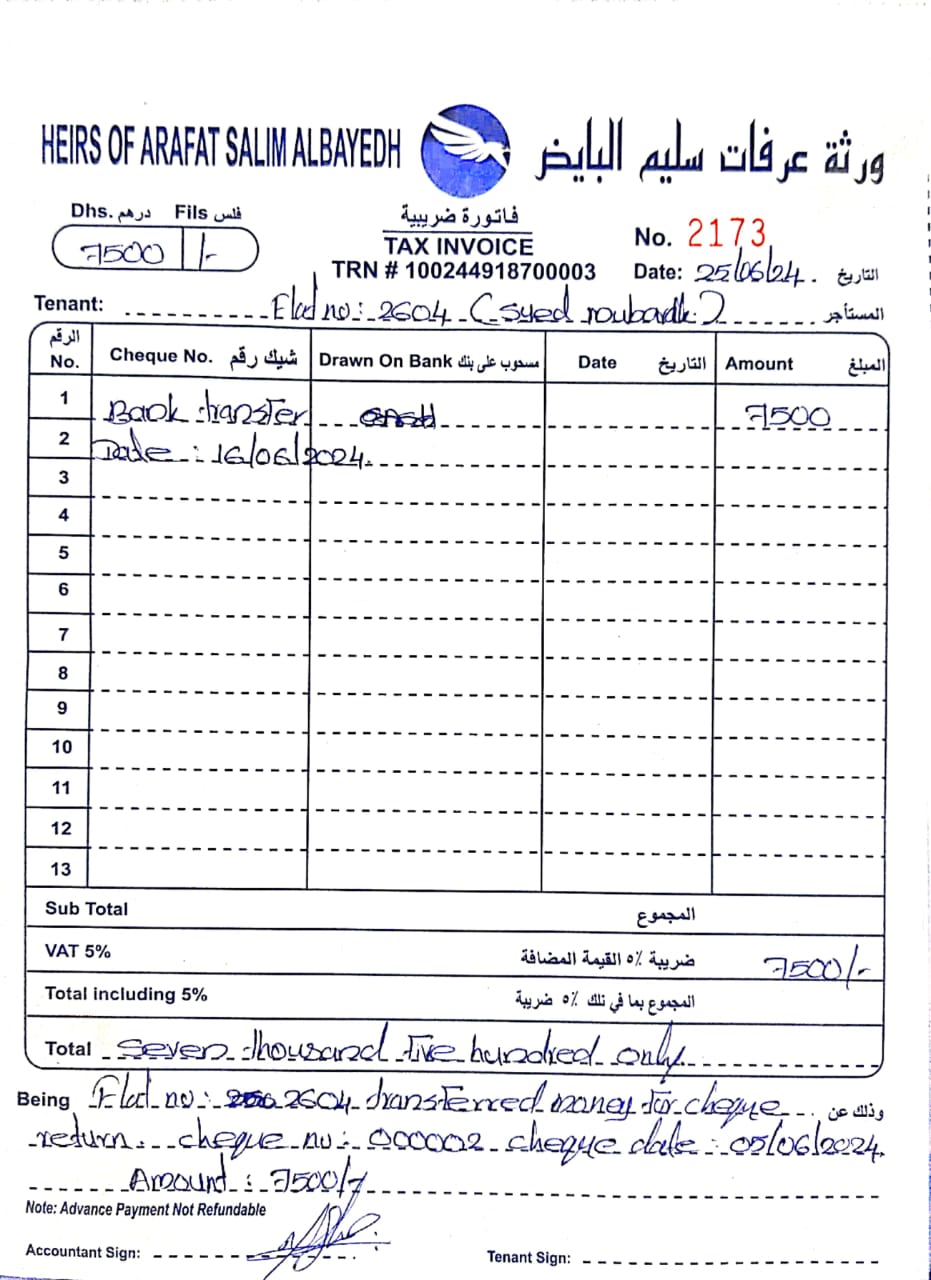 HEIRS OF ARAFAT SALIM ALBAYEDH ورثة عرفات سليم البايض
Dhs. درهم Fils فلس
7500 /-
فاتورة ضريبية
TAX INVOICE
TRN # 100244918700003
No. 2173
Date: 25/06/24. التاريخ
Tenant: Flat no: 2604 (Syed roubardk) المستأجر
الرقم No. Cheque No. شيك رقم Drawn On Bank مسحوب على بنك Date التاريخ Amount المبلغ
1 Bank transfer 7500
2 Date : 16/06/2024.
3
4
5
6
7
8
9
10
11
12
13
Sub Total المجموع
VAT 5% ضريبة ٥٪ القيمة المضافة 7500/-
Total including 5% المجموع بما في تلك ٥٪ ضريبة
Total Seven thousand five hundred only
Being Flat no: 2604 transferred money for cheque وذلك عن
return. cheque no: 000002 cheque date: 05/06/2024.
Amount : 7500/-
Note: Advance Payment Not Refundable
Accountant Sign: Tenant Sign: